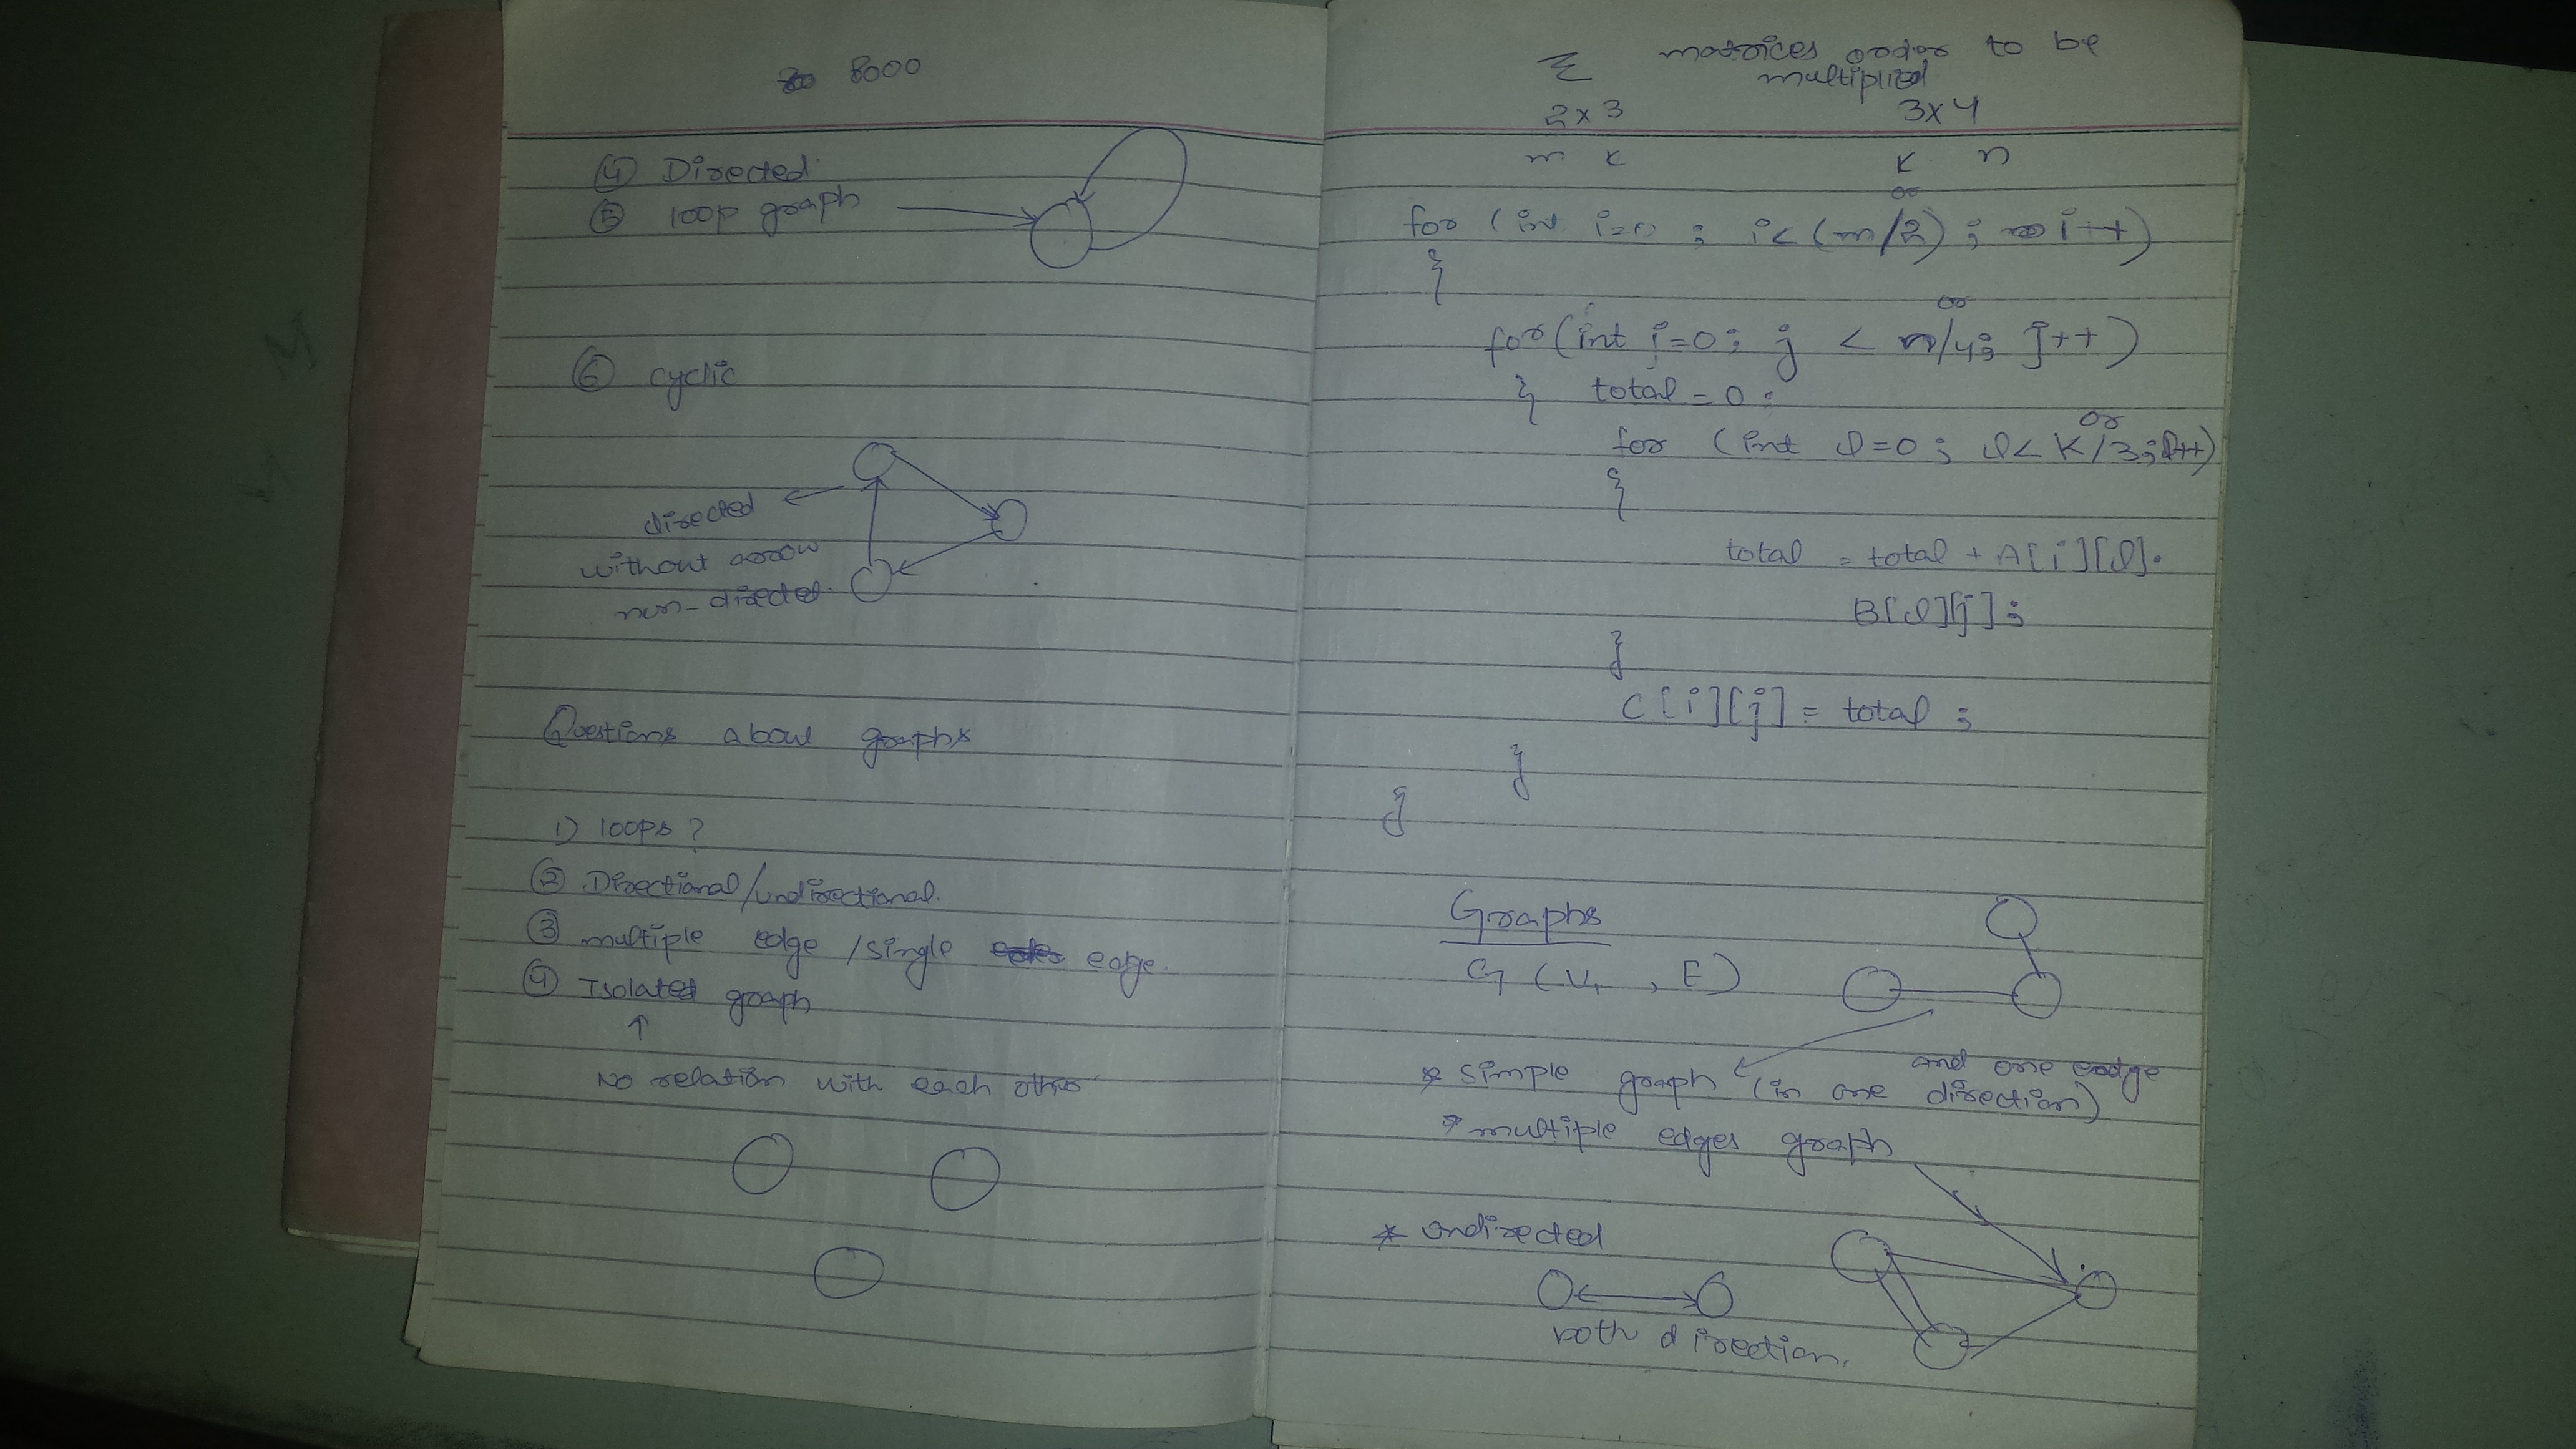 8000
④ Directed
⑤ loop graph
⑥ cyclic
directed
without arrow
non-directed.
Questions about graphs
1) loops?
② Directional/undirectional.
③ multiple edge /single edge.
④ Isolated graph
↑
No relation with each other
Σ matrices order to be
multiplied
2x3 3x4
m K K n
or
for (int i=0 ; i<(m/2) ; i++)
{
or
for(int j=0; j < n/4; j++)
{ total = 0;
or
for (int l=0; l< K/3;l++)
{
total = total + A[i][l].
B[l][j];
}
C[i][j] = total ;
}
}
Graphs
G (V , E)
and one edge
* simple graph (in one direction)
* multiple edges graph
* undirected
both direction.